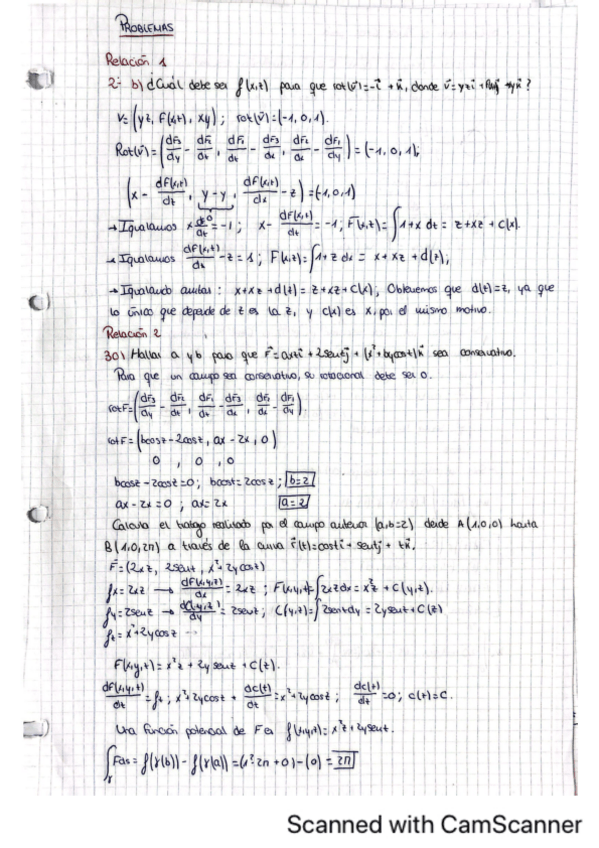 PROBLEMAS
Relación 1
2- b) ¿Cuál debe ser f(x,z) para que rot(v⃗)=-i⃗ + k⃗, donde v⃗= yzi⃗ + fj⃗ + xyk⃗ ?
V= (yz, F(x,z), xy) ; rot(v⃗)=(-1, 0, 1).
Rot(v⃗)=(dF3/dy - dF2/dz, dF1/dz - dF3/dx, dF2/dx - dF1/dy) = (-1, 0, 1);
(x - dF(x,z)/dz, y-y, dF(x,z)/dx - z) = (-1,0,1)
→ Igualamos x - dF/dz = -1 ; x - dF(x,z)/dz = -1 ; F(x,z)= ∫1+x dz = z+xz + C(x).
→ Igualamos dF(x,z)/dx - z = 1 ; F(x,z)= ∫1+z dx = x + xz + d(z);
→ Igualando ambas : x+xz +d(z) = z+xz+C(x); Obtenemos que d(z)=z, ya que
lo único que depende de z es la z, y c(x) es x, por el mismo motivo.
Relación 2
30) Hallar a y b para que F⃗= axzi⃗ + 2senzj⃗ + (x²+bycosz)k⃗ sea conservativo.
Para que un campo sea conservativo, su rotacional debe ser 0.
rotF=(dF3/dy - dF2/dz, dF1/dz - dF3/dx, dF2/dx - dF1/dy).
rotF=(bcosz-2cosz, ax-2x, 0)
0 , 0 , 0
bcosz-2cosz=0; bcosz=2cosz ; b=2
ax-2x=0 ; ax=2x a=2
Calcula el trabajo realizado por el campo anterior (a,b=2) desde A(1,0,0) hasta
B(1,0,2π) a través de la curva r⃗(t)=costi⃗ + sentj⃗ + tk⃗.
F=(2xz, 2senz, x²+2ycosz)
fx=2xz → dF(x,y,z)/dx = 2xz ; F(x,y,z)= ∫2xzdx= x²z + C(y,z).
fy=2senz → dC(y,z)/dy = 2senz; C(y,z)= ∫2senzdy = 2ysenz+C(z)
fz= x²+2ycosz
F(x,y,z)= x²z + 2y senz + C(z).
dF(x,y,z)/dz = fz ; x²+2ycosz + dC(z)/dz = x²+2ycosz ; dC(z)/dz = 0; C(z)=C.
Una función potencial de F es f(x,y,z)= x²z+2ysenz.
∫γ Fds = f(γ(b)) - f(γ(a)) = (1²·2π + 0) - (0) = 2π
Scanned with CamScanner